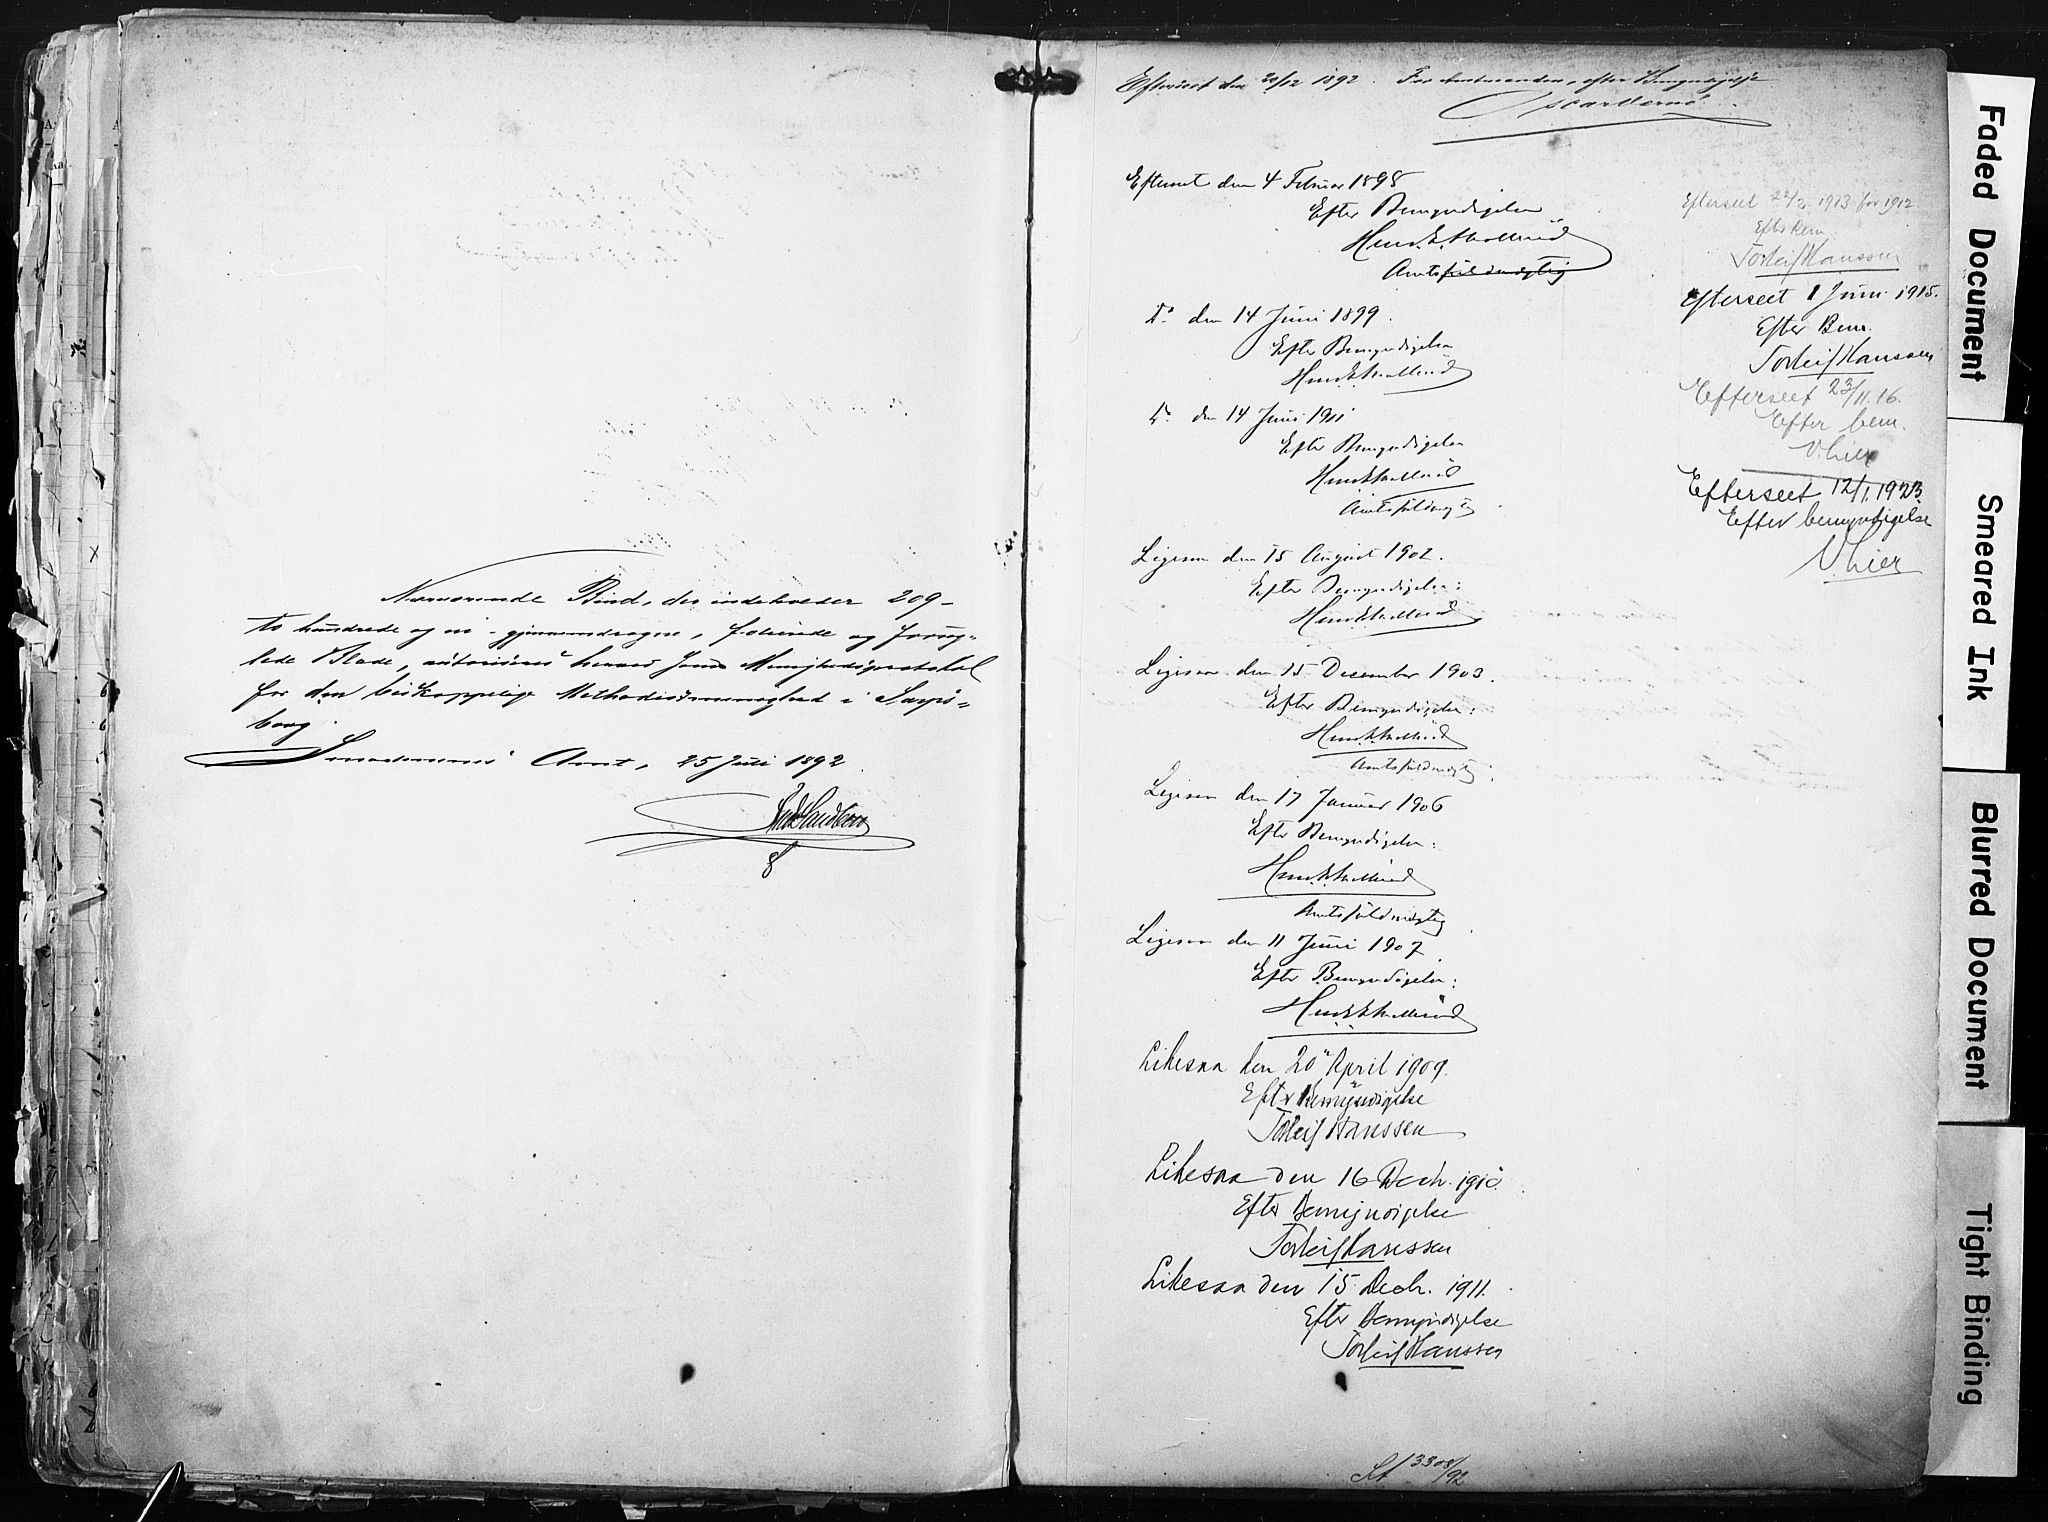 Nærværende Bind, der indeholder 209 -
to hundrede og ni - gjennemdragne, folierede og forseg-
lede Blade, autoriseres herved som Menighedsprotokol
for den biskoppelige Methodistmenighed i Sarps-
borg.
Smaalenenes Amt, 25 Juli 1892
Efterseet den 20/12 1892. For Amtmanden, efter Bemyndigelse
Efterseet den 4 Februar 1898
Efter Bemyndigelse
Amtsfuldmægtig
Do. den 14 Juni 1899.
Efter Bemyndigelse
Do. den 14 Juni 1901
Efter Bemyndigelse
Amtsfuldmægtig
Ligesaa den 15 August 1902.
Efter Bemyndigelse:
Ligesaa den 15 December 1903.
Efter Bemyndigelse:
Amtsfuldmægtig.
Ligesaa den 17 Januar 1906
Efter Bemyndigelse:
Amtsfuldmægtig
Ligesaa den 11 Juni 1907.
Efter Bemyndigelse:
Likesaa den 20 April 1909.
Efter Bemyndigelse
Torleif Hanssen
Likesaa den 16 Decbr. 1910.
Efter Bemyndigelse
Torleif Hanssen
Likesaa den 15 Decbr. 1911.
Efter Bemyndigelse
Torleif Hanssen
3308/92
Efterseet 22/2 1913 for 1912.
Efter Bem.
Torleif Hanssen
Efterseet 1 Juni 1915.
Efter Bem.
Torleif Hanssen
Efterseet 23/11.16.
Efter bem.
V. Lier
Efterseet 12/1.1923.
Efter bemyndigelse
V. Lier
Faded Document
Smeared Ink
Blurred Document
Tight Binding